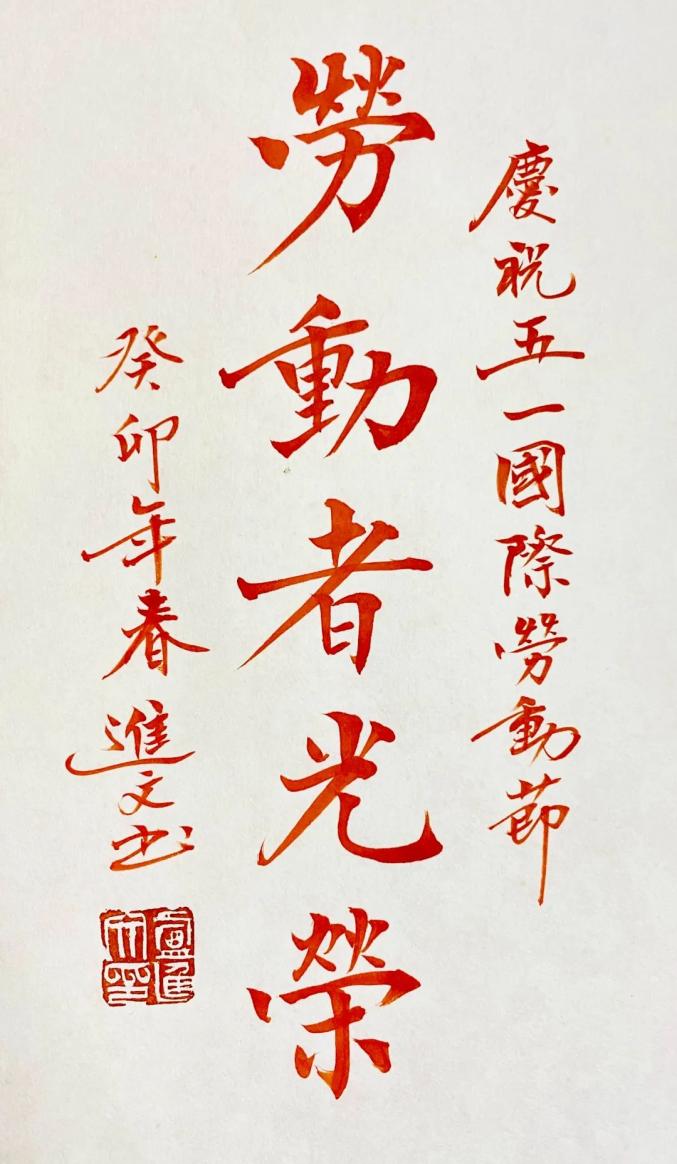 慶祝五一國際勞動節
勞動者光榮
癸卯年春進文书